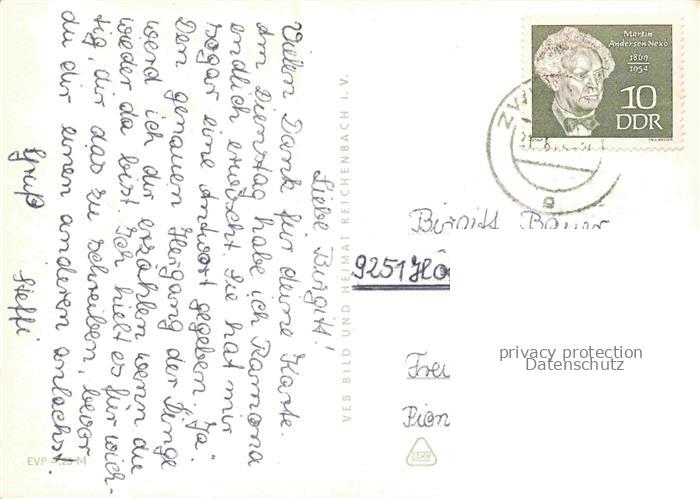 Liebe Birgitt!
Vielen Dank für deine Karte.
Am Dienstag habe ich Ramona
endlich erwischt. Sie hat mir
sogar eine Antwort gegeben. „Ja“
Den genauen Hergang der Dinge
werd ich dir erzählen wenn du
wieder da bist. Ich hielt es für wich-
tig, dir das zu schreiben, bevor
du dir einen anderen anlachst.
Gruß Steffi
EVP -,25 M
VEB BILD UND HEIMAT REICHENBACH I. V.
Martin
Andersen Nexö
1869
1954
10
DDR
ZW
Birgitt
9251
Frei
Pion
privacy protection
Datenschutz